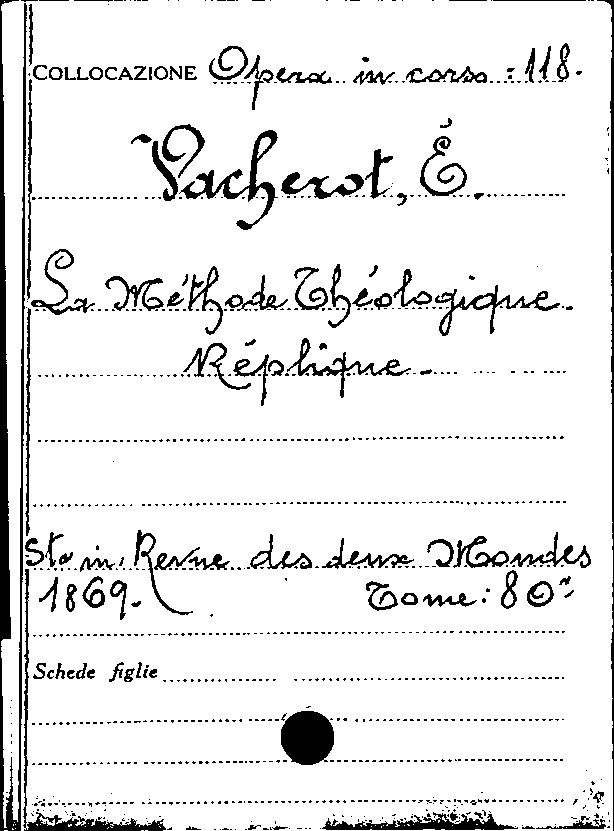 COLLOCAZIONE Opera in corso = 118.
Vacherot, É.
La Méthode Théologique.
Réplique.
Sta in, Revue des deux Mondes
1869. Tome: 80°
Schede figlie